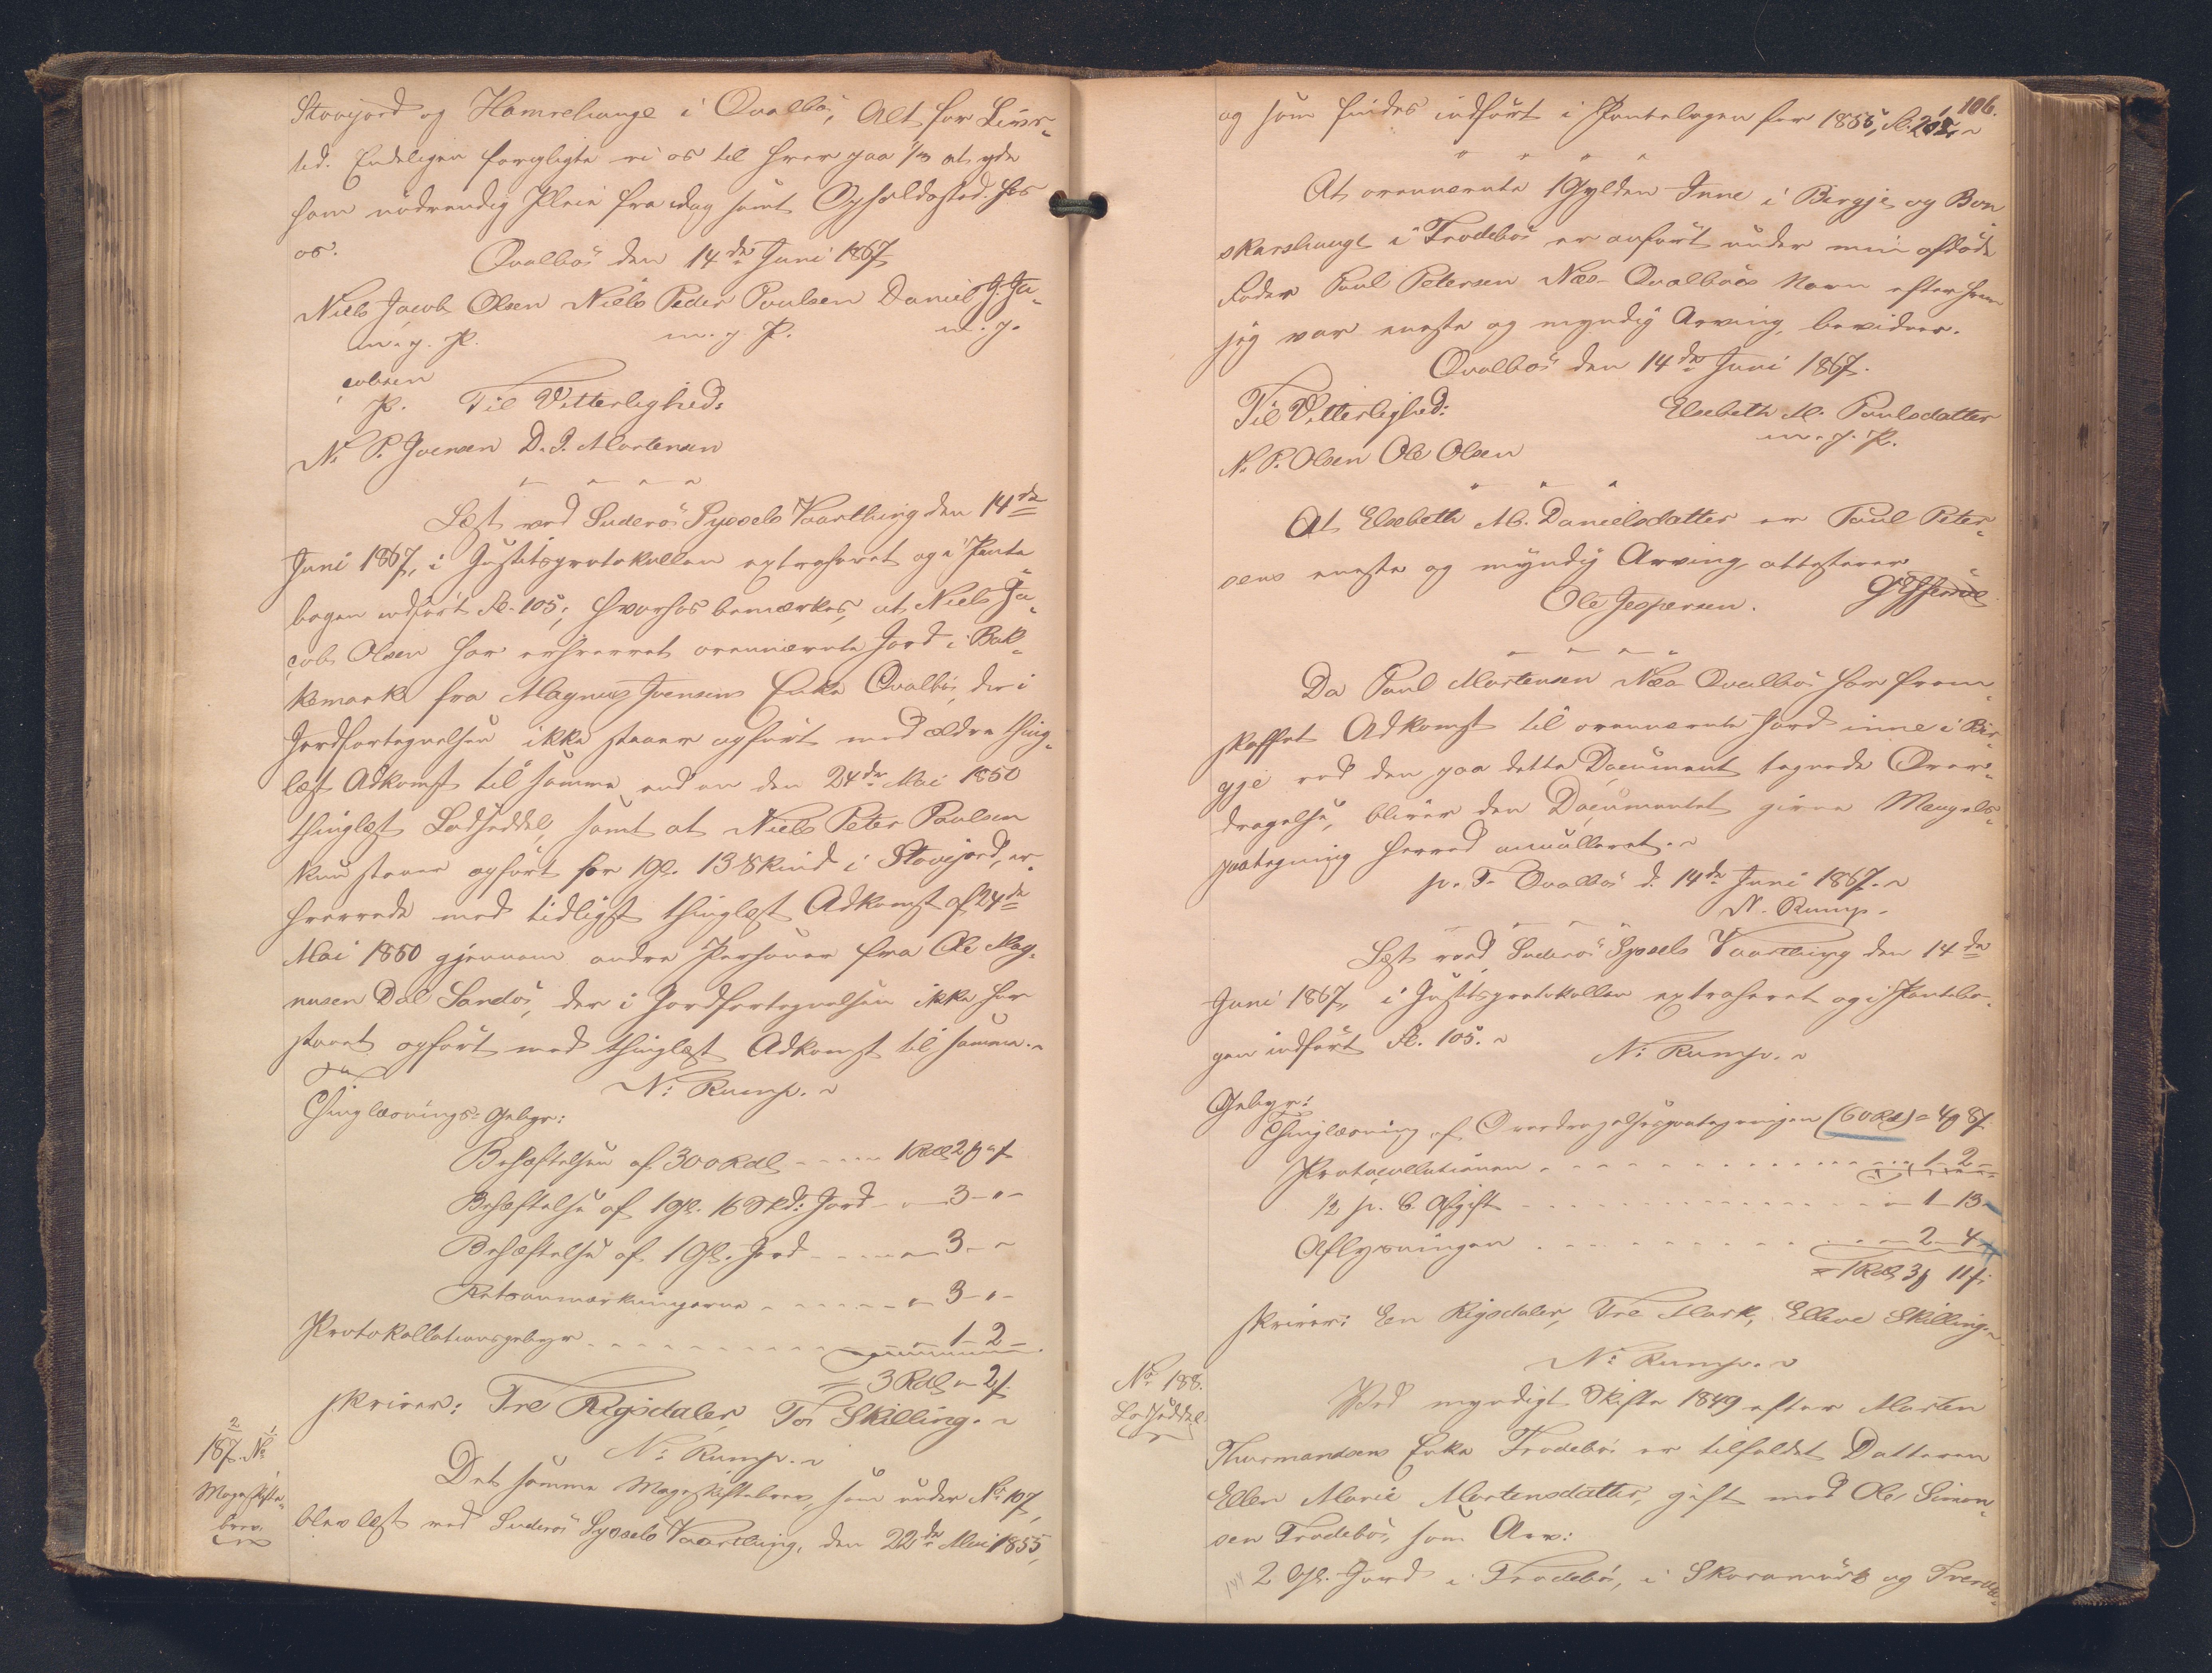 Stovejord og Hamrehauge i Qvalbö, Alt for Livs-
tid. Endeligen forpligte vi os til hver paa 1/3 at yde
ham nödvendig Pleie fra idag samt Opholdssted hos
os. Qvalbö den 14de Juni 1867
Niels Jacob Olsen Niels Peder Poulsen Daniel J. Ja-
m. p. P. m. p. P. m. p.
cobsen
P. Til Vitterlighed:
N. P. Joensen D. J. Mortensen
Læst ved Suderö Syssels Vaarthing den 14de
Juni 1867, i Justitsprotokollen extraheret og i Pante-
bogen indfört Fol. 105; hvorhos bemærkes, at Niels Ja-
cob Olsen har erhvervet ovennævnte Jord i Bak-
kemark fra Magnus Joensens Enke Qvalbö, der i
Jordfortegnelsen ikke staaer opfört med ældre thing-
læst Adkomst til samme end en den 24de Mai 1850
thinglæst Lodseddel, samt at Niels Peter Poulsen
kun staaer opfört for 1 Gl. 13 Skind i Stovejord, er-
hvervede med tidligst thinglæst Adkomst af 24de
Mai 1850 gjennem andre Personer fra Ole Mag-
nusen Dal Sandö, der i Jordfortegnelsen ikke har
staaet opfört med thinglæst Adkomst til samme.
N. Rump.
Thinglæsnings-Gebyr:
Behæftelsen af 300 Rdl - - - - 1 Rdl 2 ß
Behæftelse af 1 Gl. 16 Skd: Jord - - 3 - " -
Behæftelse af 1 Gl. Jord - - - - 3 - -
Retsanmærkningerne - - - - - 3 - " -
Protokollationsgebyr - - - - - - - - 1 - 2 -
= 3 Rdl " 2 ß
skriver: Tre Rigsdaler To Skilling.
N. Rump.
187. No
Mageskifte-
brev.
Det samme Mageskiftebrev, som under No 107,
blev læst ved Suderö Syssels Vaarthing, den 22de Mai 1855,
106.
og som findes indfört i Pantebogen for 1855, Fol.
At ovennævnte 1 Gylden Inne i Birgje og Bon
skarshauge i Frodebö er anfört under min afdöde
Fader Poul Petersen Næs Qvalböes Navn efter hvem
jeg var eneste og myndig Arving, bevidner.
Qvalbö den 14de Juni 1867.
Til Vitterlighed: Elsebeth M. Poulsdatter
m. p. P.
N. P. Olsen Ole Olsen
At Elsebeth M. Danielsdatter er Poul Peter-
sens eneste og myndig Arving, attesterer
Ole Jespersen.
Da Poul Mortensen Næs Qvalbö har frem-
skaffet Adkomst til ovennævnte Jord inne i Bir-
gje ved den paa dette Document tegnede Over-
dragelse, bliver den Documentet givne Mangels-
paategning herved annulleret.
p. T. Qvalbö d. 14de Juni 1867.
N. Rump.
Læst ved Suderö Syssels Vaarthing den 14de
Juni 1867, i Justitsprotokollen extraheret og i Pantebo-
gen indfört Fol. 105. N. Rump.
Gebyr:
Thinglæsning af Overdragelsespaategningen (60 Rd) = 4 ß
Protocollationen - - - - - - - - 1 - 2 -
1/2 p. C. Afgift - - - - - - - - 1 - 13 -
Aflysningen - - - - - - - - 2 - 4
= 1 Rdl 3 11 ß
skriver: Een Rigsdaler, Tre Mark, Elleve Skilling.
N. Rump.
No 188.
Lodseddel
Ved myndigt Skifte 1849 efter Morten
Thurmandsens Enke Frodebö er tilfaldet Datteren
Ellen Marie Mortensdatter, gift med Ole Simon-
sen Frodebö, som Arv:
144 2 Gl. Jord i Frodebö, i Skoramörk og